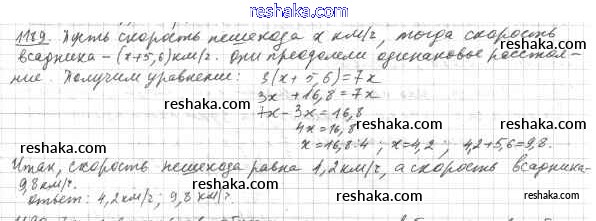 www.reshaka.com
1189. Пусть скорость пешехода x км/ч, тогда скорость
всадника – (x+5,6) км/ч. Они преодолели одинаковое расстоя-
ние. Получим уравнение: 3(x+5,6)=7x
reshaka.com
3x+16,8=7x
reshaka.com
7x-3x=16,8
reshaka.com
4x=16,8
reshaka.com
x=16,8:4; x=4,2; 4,2+5,6=9,8.
Итак, скорость пешехода равна 4,2км/ч, а скорость всадника-
9,8км/ч.
reshaka.com
reshaka.com
Ответ: 4,2км/ч; 9,8 км/ч.
reshaka.com